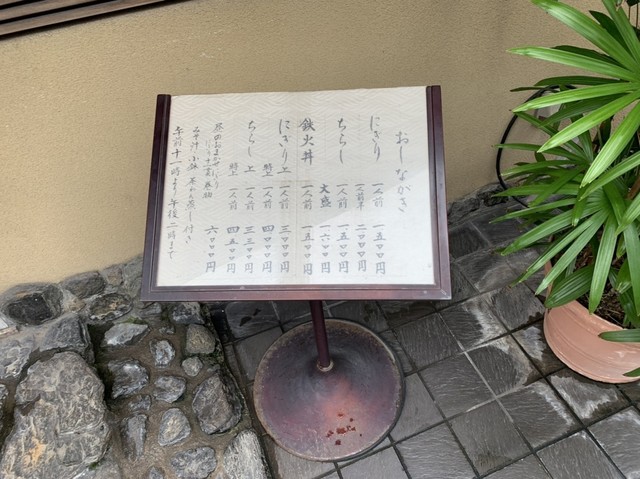 おしながき
にぎり 一人前 一五〇〇円
一人前半 二〇〇〇円
ちらし 一人前 一五〇〇円
大盛 一六〇〇円
鉄火丼 一人前 一五〇〇円
にぎり上 一人前 三三〇〇円
特上 一人前 四〇〇〇円
ちらし上 一人前 三三〇〇円
特上 一人前 四五〇〇円
昼のおまかせにぎり 一人前 六〇〇〇円
にぎり十一貫、巻物
みそ汁、小鉢、茶わん蒸し付き
午前十一時より午後二時まで